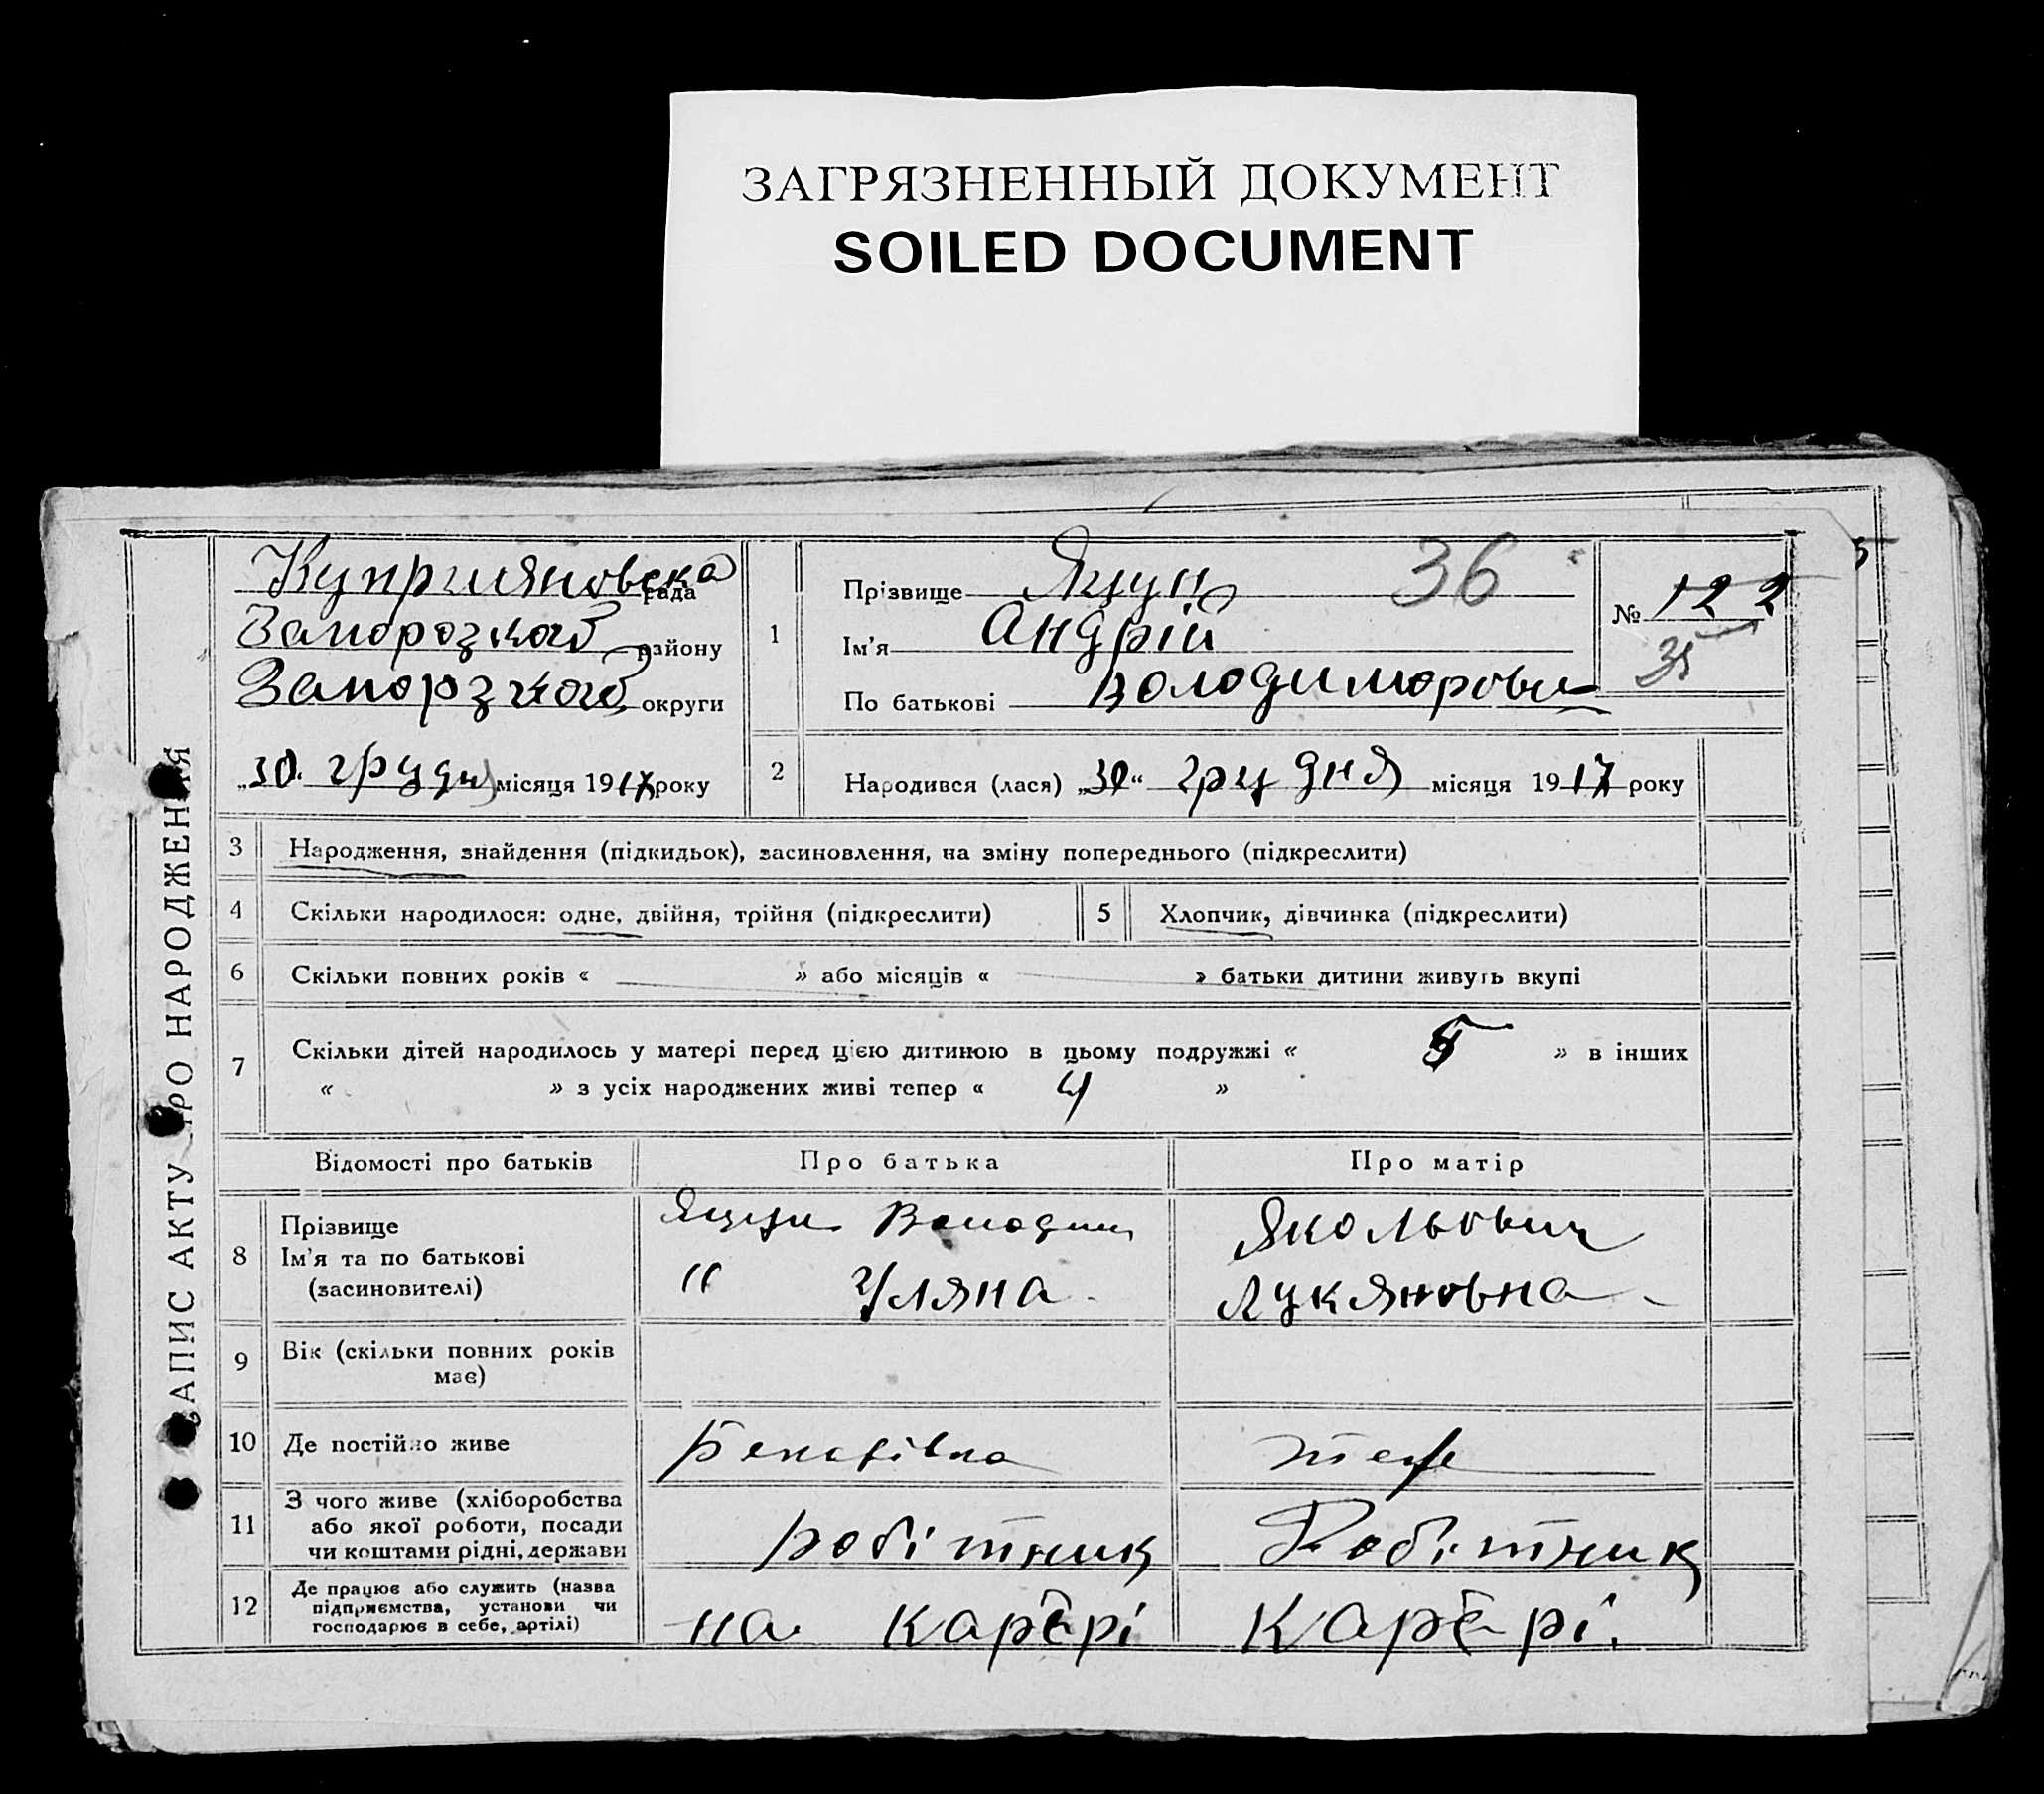 ЗАГРЯЗНЕННЫЙ ДОКУМЕНТ
SOILED DOCUMENT
АПИС АКТУ РО НАРОДЖЕННЯ
Куприяновска рада
району
округи
„30. грудня місяця 1917 року
1
Прізвище Яцун 36
Ім'я Андрій
По батькові Володимирович
№ 122
35
2
Народився (лася) „30“ грудня місяця 1917 року
3 Народження, знайдення (підкидьок), засиновлення, на зміну попереднього (підкреслити)
4 Скільки народилося: одне, двійня, трійня (підкреслити)
5 Хлопчик, дівчинка (підкреслити)
6 Скільки повних років « » або місяців « » батьки дитини живуть вкупі
7 Скільки дітей народилось у матері перед цією дитиною в цьому подружжі « 5 » в інших
« » з усіх народжених живі тепер « 4 »
Відомості про батьків Про батька Про матір
8 Прізвище
Ім'я та по батькові
(засновителі)
Яцун Володим
" Уляна
Якольович
Лукяновна
9 Вік (скільки повних років
має)
10 Де постійно живе теж
11 З чого живе (хліборобства
або якої роботи, посади
чи коштами рідні, держави
робітник Робітник
12 Де працює або служить (назва
підприємства, установи чи
господарює в себе, артілі)
на карєрі карєрі.